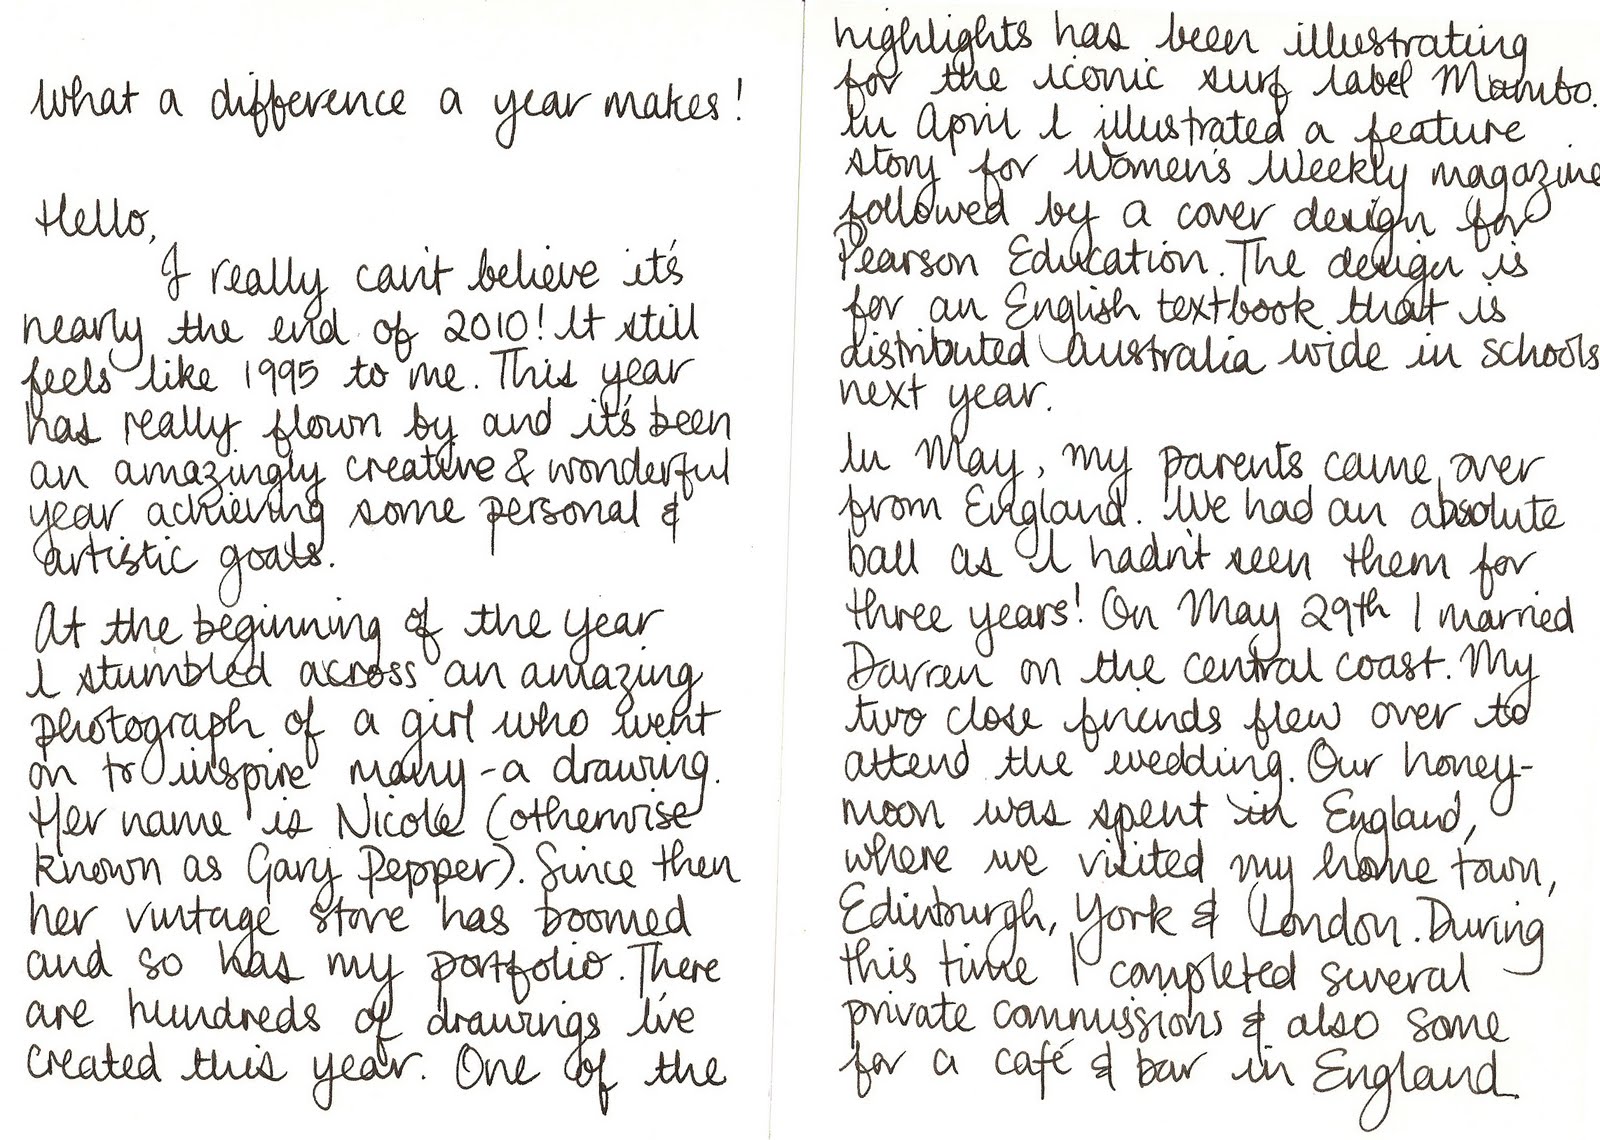 What a difference a year makes!
Hello,
I really can't believe it's
nearly the end of 2010! It still
feels like 1995 to me. This year
has really flown by and it's been
an amazingly creative & wonderful
year achieving some personal &
artistic goals.
At the beginning of the year
I stumbled across an amazing
photograph of a girl who went
on to inspire many-a drawing.
Her name is Nicole (otherwise
known as Gary Pepper). Since then
her vintage store has boomed
and so has my portfolio. There
are hundreds of drawings I've
created this year. One of the
highlights has been illustrating
for the iconic surf label Mambo.
In April I illustrated a feature
story for Women's Weekly magazine
followed by a cover design for
Pearson Education. The design is
for an English textbook that is
distributed Australia wide in schools
next year.
In May, my parents came over
from England. We had an absolute
ball as I hadn't seen them for
three years! On May 29th I married
Darren on the central coast. My
two close friends flew over to
attend the wedding. Our honey-
moon was spent in England,
where we visited my home town,
Edinburgh, York & London. During
this time I completed several
private commissions & also some
for a café & bar in England